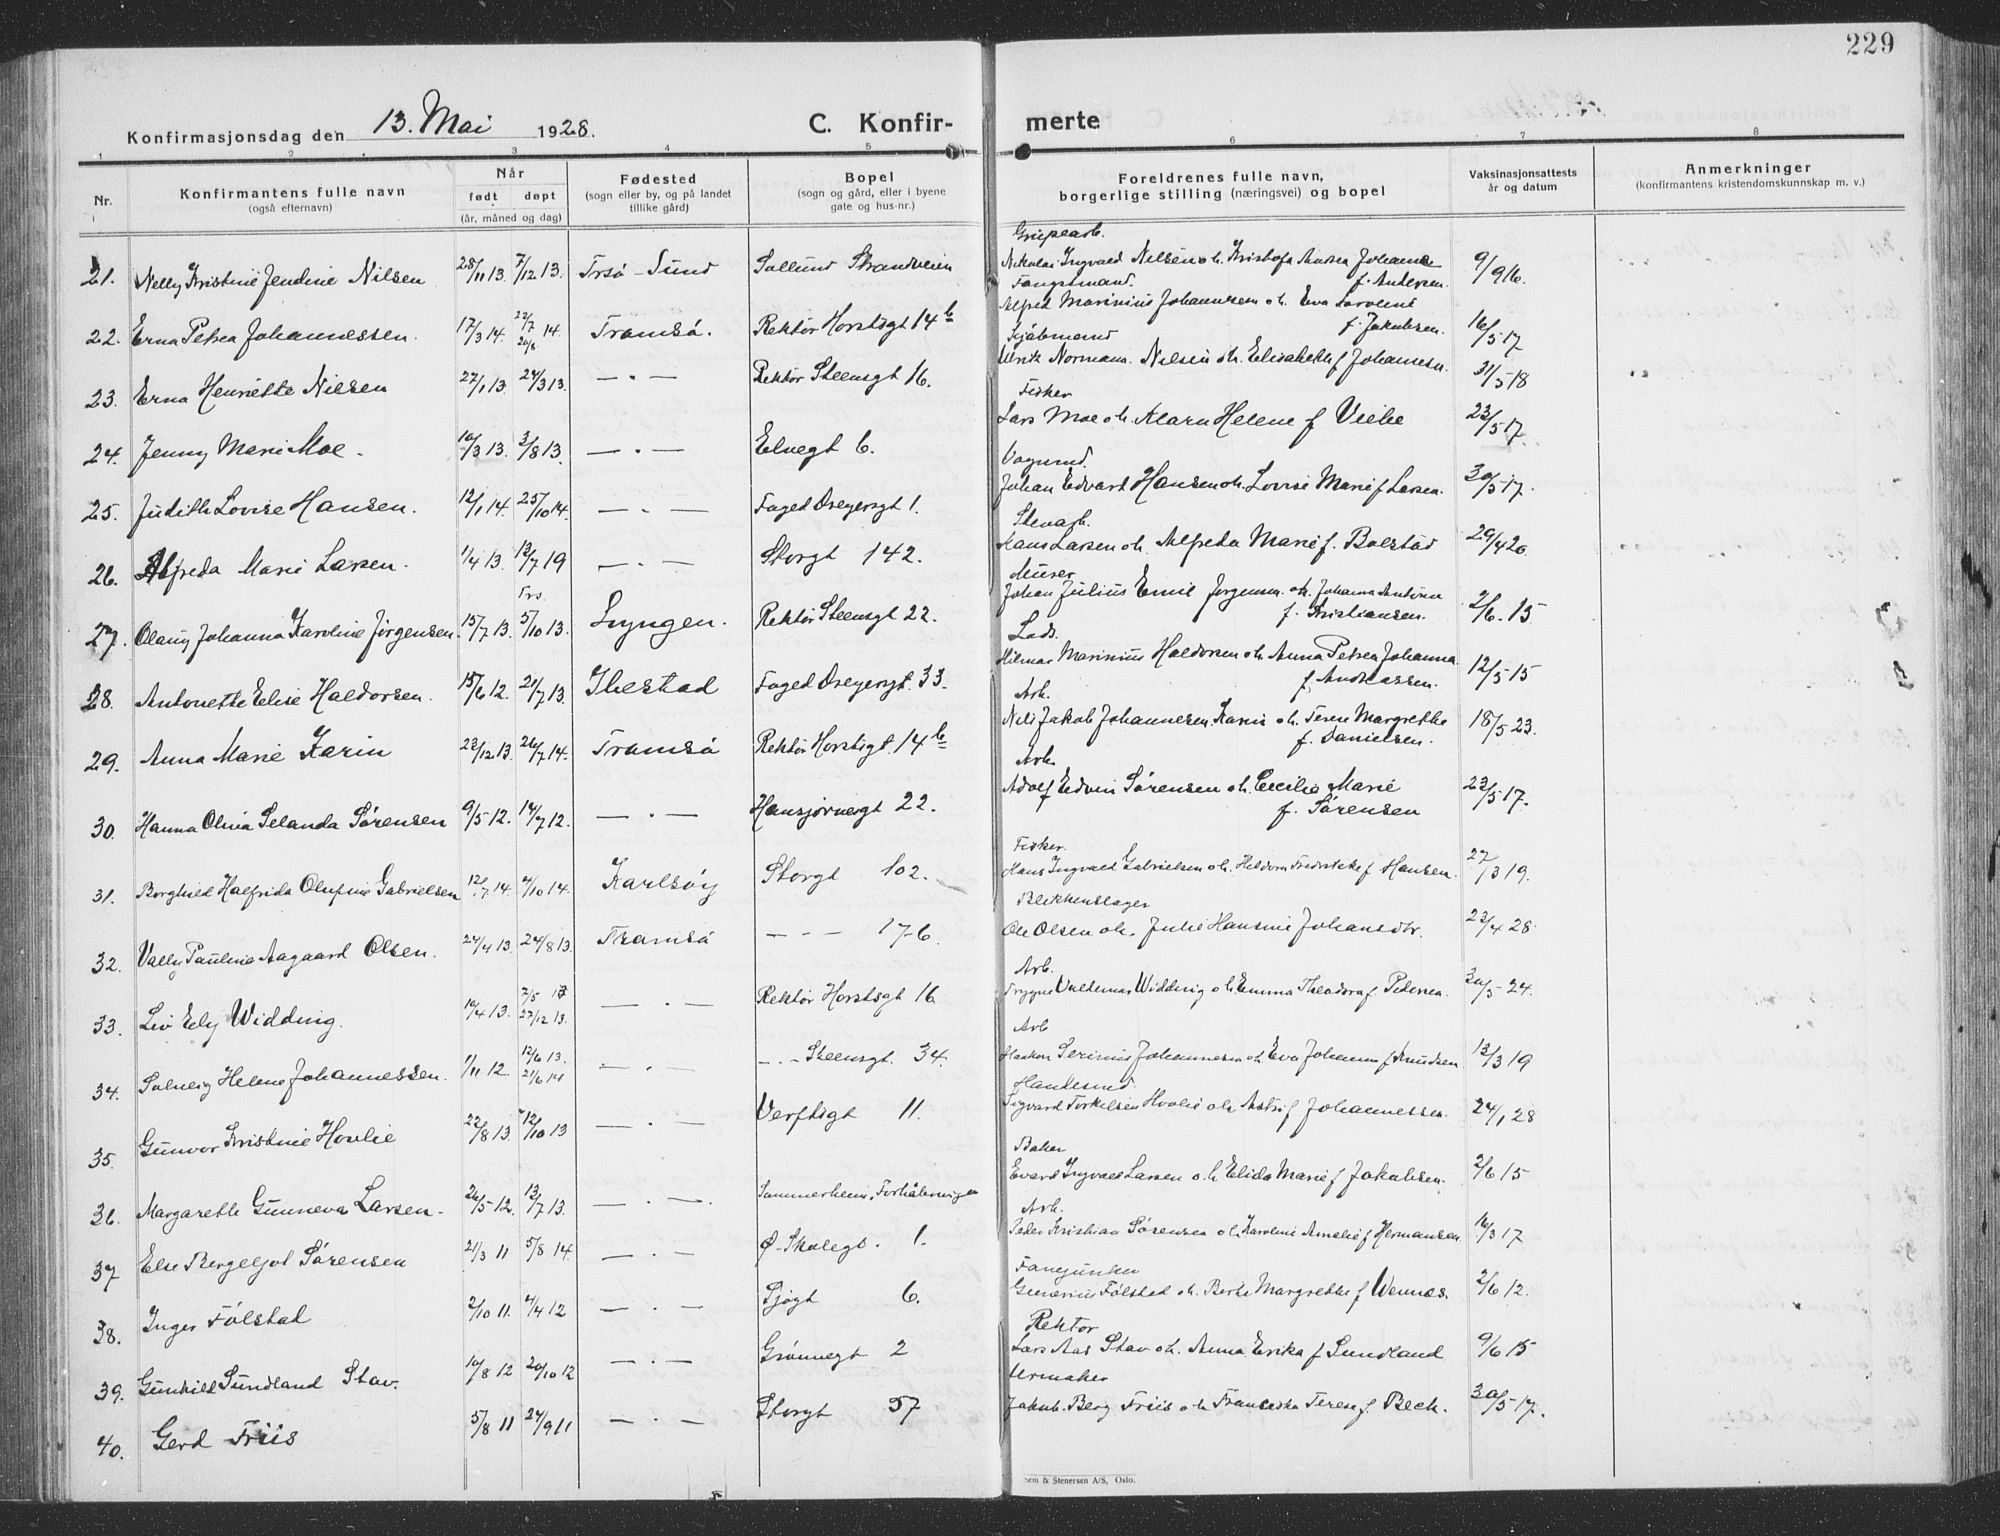 229
Konfirmasjonsdag den 13. Mai 1928. C. Konfir- merte
1 2 3 4 5 6 7 8
Nr. Konfirmantens fulle navn (også efternavn) Når født døpt (år, måned og dag) Fødested (sogn eller by, og på landet tillike gård) Bopel (sogn og gård, eller i byene gate og hus-nr.) Foreldrenes fulle navn, borgerlige stilling (næringsvei) og bopel Vaksinasjonsattests år og datum Anmerkninger (konfirmantens kristendomskunnskap m. v.)
Grupearb.
21. Nelly Kristine Jendine Nilsen 28/11 13. 7/12 13. Trsö-Sund Sollund Strandveien Nikolai Ingvald Nilsen o.h. Kristofa Andrea Johanne f. Andersen. 9/9 16.
Fangstmand.
22. Erna Petrea Johannessen. 17/3 14. 14. Tromsö. Rektor Horstsgt 14 b Alfred Marinius Johannessen o.h. Eva Karoline f. Jakobsen. 16/5 17
23. Erna Henriette Nilsen 27/1 13. 24/3 13. — . — Rektor Steensgt 16. Ulrik Normann Nilsen o.h. Elisabeth f Johannesen. 31/5 18
Fisker
24. Jenny Marie Moe. 10/3 13. 3/8 13. — . — Elvegt 6. Lars Moe o.h. Maren Helene f Viebe 23/5 17.
Vognmd.
25. Judith Lovise Hansen. 12/1 14. 25/10 14. — . — Foged Dreyersgt 1. Johan Edvard Hansen o.h. Lovise Marie f Larsen. 30/5 17.
Stenarb.
26. Alfreda Marie Larsen. 1/4 13. 13/7 19 — . — Storgt 142. Hans Larsen o.h. Alfreda Marie f. Bolstad 29/4 20.
Murer
27. Olaug Johanna Karoline Jørgensen. 15/7 13. Trs. 5/10 13. Lyngen. Rektor Steensgt 22. Johan Julius Emil Jørgensen o.h. Johanna Antonie f. Kristiansen. 2/6. 15
Lods.
28. Antonette Elise Haldorsen. 15/6 12. 20/7 13. Ibestad Foged Dreyersgt. 33. Hilmar Marinius Haldorsen o.h. Anna Petrea Johanna f. Andreassen. 12/5 15
Arb.
29. Anna Marie Karin 23/12 13. 26/7 14. Tromsö Rektor Horstsgt. 14 b Nils Jakob Johannesen Karin o.h. Terese Margrethe f. Danielsen. 18/5 23.
Arb.
30. Hanna Olivia Selanda Sørensen 9/5 12. 14/7 12. — . — Hansjørnesgt 22. Adolf Edvin Sørensen o.h. Cecilie Marie f. Sørensen 23/5 17.
Fisker.
31. Borghild Halfrida Olufine Gabrielsen 12/7 14. 4/10 14. Karlsöy Storgt 102. Hans Ingvald Gabrielsen o.h. Fredrikke f Hansen. 27/3 19.
Blikkenslager
32. Vally Pauline Aagaard Olsen. 24/4 13. 24/8 13. Tromsö — — 176. Ole Olsen o.h. Julie Hansine Johansdtr. 23/4 28.
Arb.
33. Liv Ely Widding. 10/4 13. 27/12 13. — . — Rektor Horstsgt 16 Trygve Valdemar Widding o.h. Emma Theodora f. Pedersen. 30/5 24.
Arb
34. Solveig Helene Johannessen. 1/11 12. 12/6 13. 21/6 14 — . — — . — Steensgt. 34. Haakon Serinius Johannesen o.h. Eva Johanna f Knudsen 13/3 19
Handesmd.
35. Gunvor Kristine Hovlie 22/8 13. 12/10 13 — . — Verftsgt 11. Sigvard Torkilsen Hovlie o.h. Astri f Johannessen. 24/1 28
Baker
36. Margareth Gunneva Larsen. 26/5 12. 13/7 13. — . — Sommerheim, Evard Ingvald Larsen o.h. Elida Marie f Jakobsen. 2/6 15
Arb.
37 Else Bergeljot Sørensen 21/3 11 5/8 14. — . — Ø-Skolegt. 1. Peder Kristian Sørensen o.h. Karoline Amalie f Hermansen 16/3 17
Fanejunker
38. Inger Følstad 2/10 11. 4/4 12 — . — Sjøgt 6. Gunerius Følstad o.h. Berte Margrethe f Wennæs. 2/6 12.
Rektor
39. Gunhild Sundland Stav. 10/8 12 20/10 12 — . — Grönnegt 2 Lars Aas Stav o.h. Anna Erika f Sundland 9/6 15
Urmaker
40. Gerd Friis 5/8 11 24/9 11 — . — Storgt 57 Jakob Berg Friis o.h. Franciska Terese f. Beck. 30/5 17.
Sem & Stenersen A/S, Oslo.